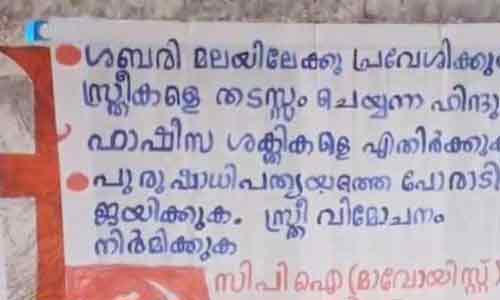 ശബരി മലയിലേക്കു പ്രവേശിക്കു
സ്ത്രീകളെ തടസ്സം ചെയ്യുന്ന ഹിന്ദു
ഫാഷിസ ശക്തികളെ എതിർക്കുക
പുരുഷാധിപത്യയത്തെ പോരാടി
ജയിക്കുക. സ്ത്രീ വിമോചനം
നിർമിക്കുക
സിപിഐ(മാവോയിസ്റ്റ്)